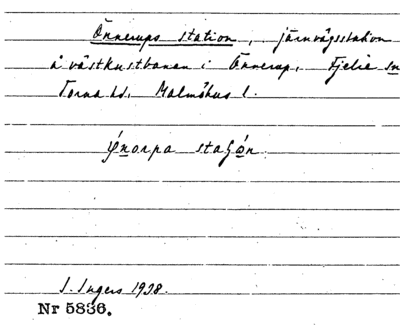 Önnerups station, järnvägsstation
å västkustbanen i Önnerup, Fjelie sn
Torna hd. Malmöhus l.
ǿnorpa staʃǿn
I. Ingers 1938.
Nr 5836.